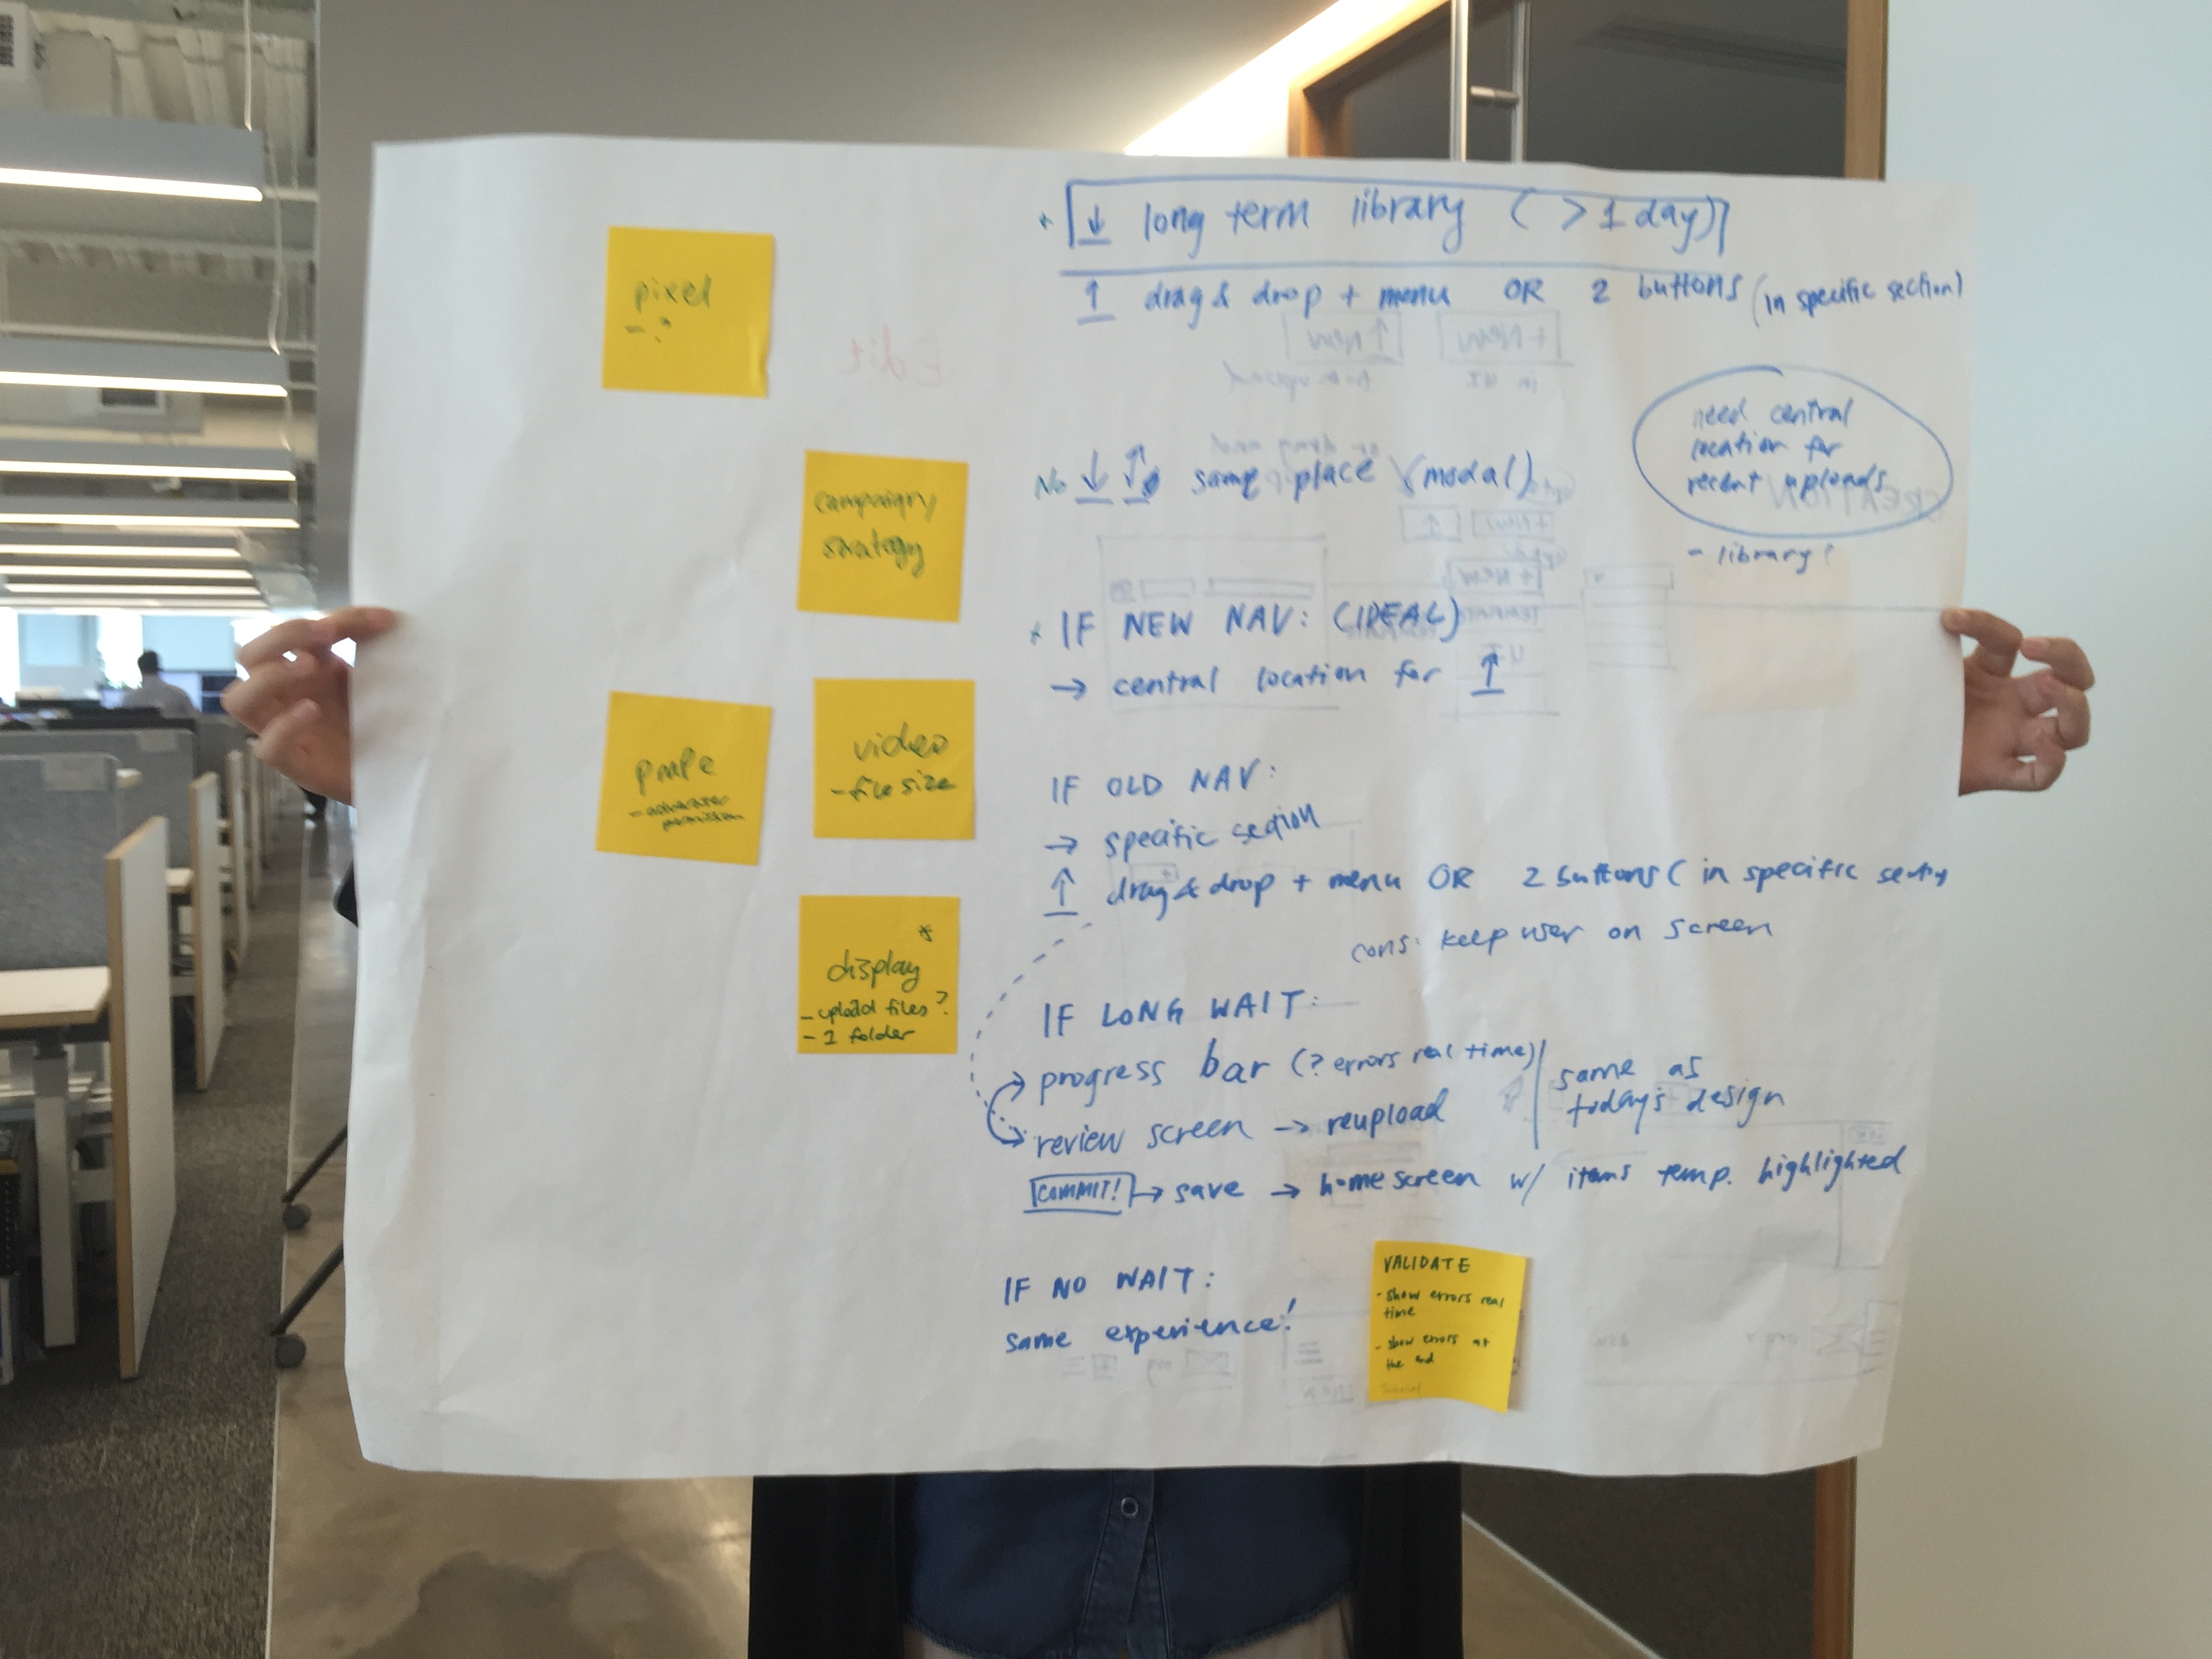 pixel
- ?
campaign
strategy
pmpe
video
- file size
*
display
- upload files?
- 1 folder
↓ long term library ( > 1 day)
↑ drag & drop + menu OR 2 buttons (in specific section)
need central
location for
recent uploads
- library?
No ↓ ↑ same place (modal)
IF NEW NAV: (IDEAL)
→ central location for ↑
IF OLD NAV:
→ specific section
↑ drag & drop + menu OR 2 buttons ( in specific
cons: keep user on screen
IF LONG WAIT:
progress bar (? errors real time)
same as
today's design
review screen → reupload
COMMIT! → save → home screen w/ items temp. highlighted
IF NO WAIT:
same experience!
VALIDATE
- show errors real
time
- show errors at
the end
Edit
↑ New
+ New
in UI
+ New